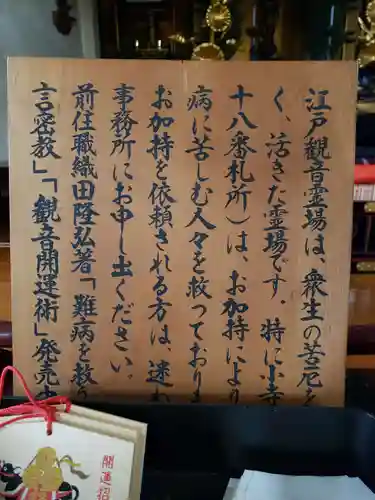 江戸観音霊場は、衆生の苦厄を
く、活きた霊場です。特に小寺
十八番札所)は、お加持により
病に苦しむ人々を救っておりま
お加持を依頼される方は、迷わ
事務所にお申し出ください。
前住職織田隆弘著「難病を救う
言密教」「観音開運術」発売中
開運招